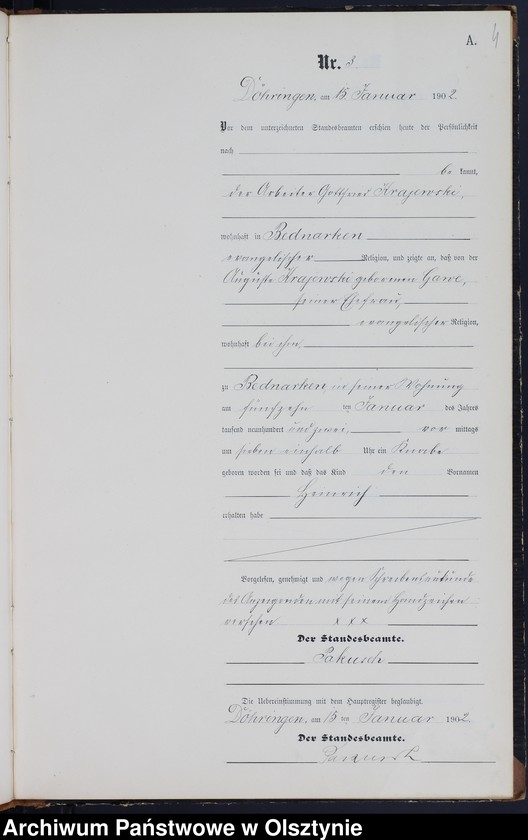 A. 4
Nr. 3
Döhringen, am 15 Januar 1902.
Vor dem unterzeichneten Standesbeamten erschien heute der Persönlichkeit
nach
be kannt,
der Arbeiter Gottfried Krajewski,
wohnhaft in Bednarken
evangelischer Religion, und zeigte an, daß von der
Auguste Krajewski geborenen Gawe,
seiner Ehefrau,
evangelischer Religion,
wohnhaft bei ihm,
zu Bednarken, in seiner Wohnung
am fünfzehn ten Januar des Jahres
tausend neunhundert und zwei, vor mittags
um sieben einhalb Uhr ein Knabe
geboren worden sei und daß das Kind den Vornamen
Heinrich
erhalten habe
Vorgelesen, genehmigt und wegen Schreibensunkunde
des Anzeigenden mit seinem Handzeichen
versehen x x x
Der Standesbeamte.
Pakusch
Die Uebereinstimmung mit dem Hauptregister beglaubigt.
Döhringen, am 15 ten Januar 1902.
Der Standesbeamte.
Archiwum Państwowe w Olsztynie